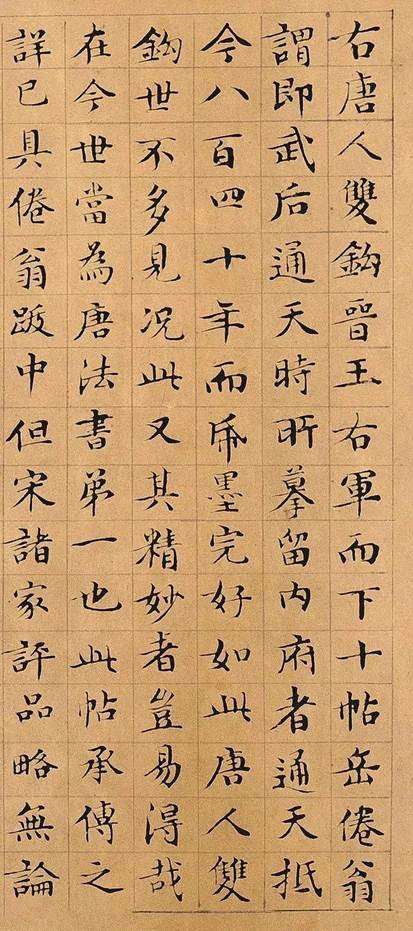 右唐人雙鈎晉王右軍而下十帖岳倦翁
謂即武后通天時所摹留内府者通天抵
今八百四十年而紙墨完好如此唐人雙
鈎世不多見况此又其精妙者豈易得哉
在今世當為唐法書第一也此帖承傳之
詳已具倦翁跋中但宋諸家評品略無論